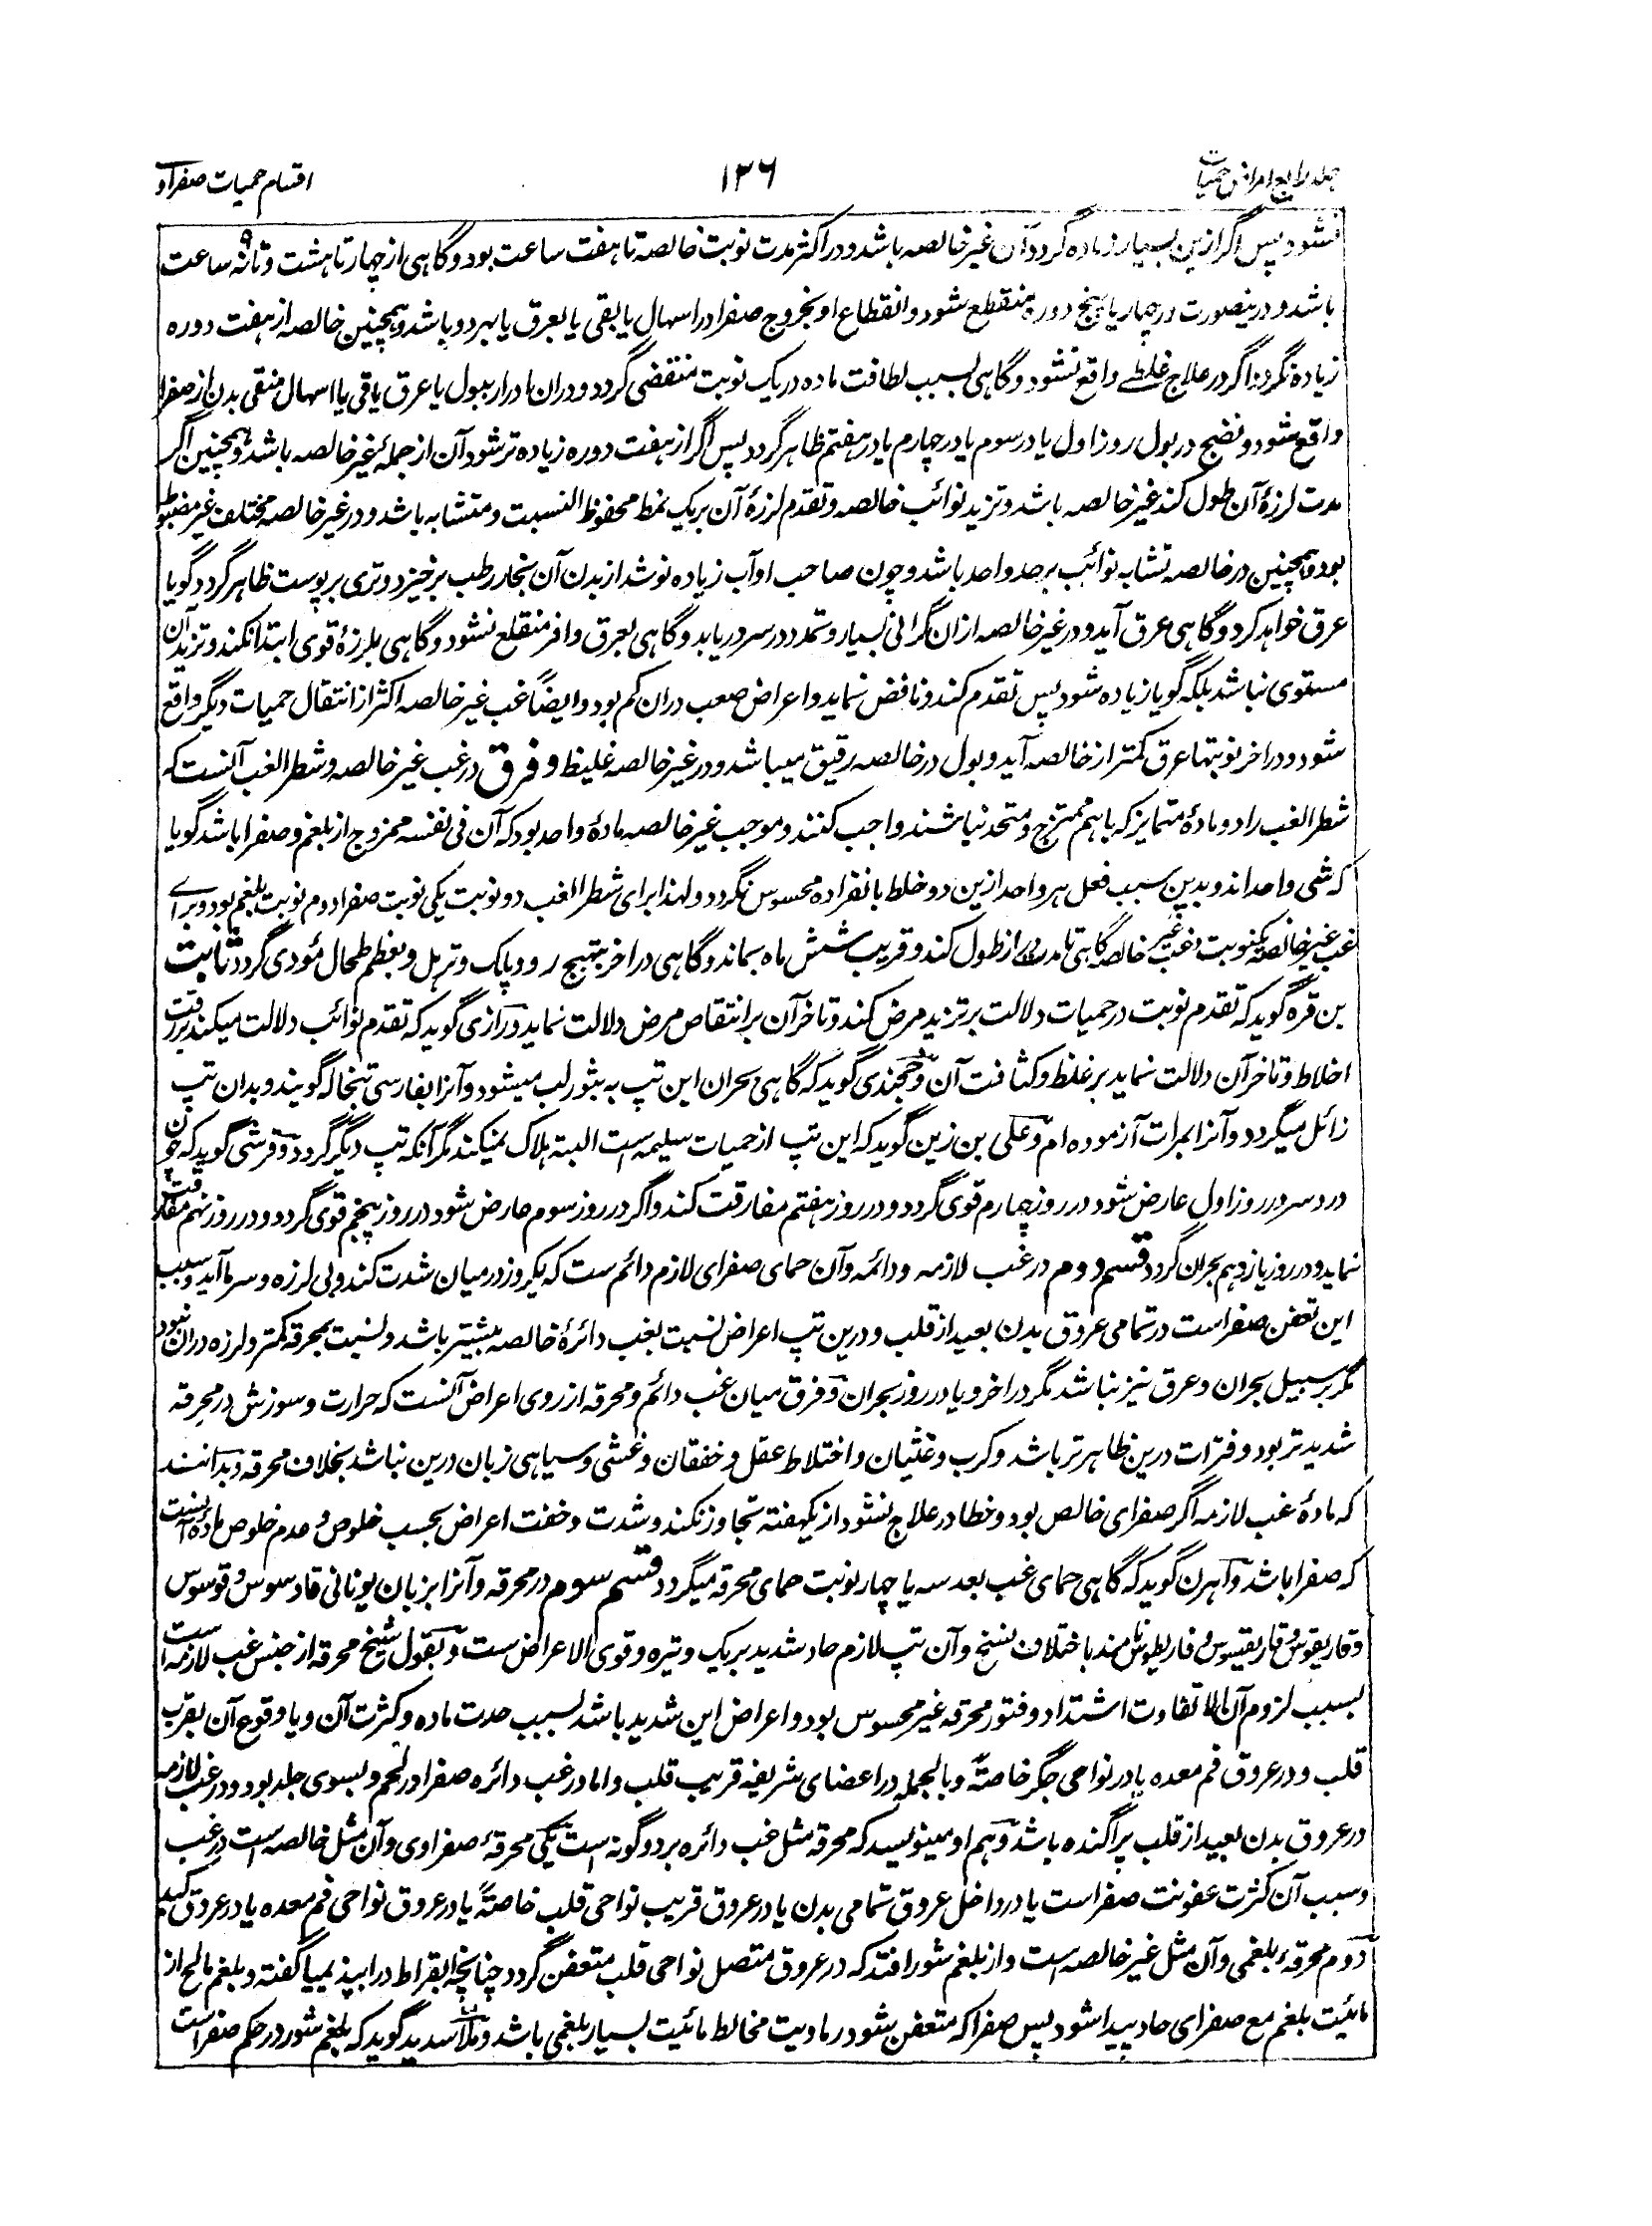 جلد رابع امراض حمیات
۱۳۶
اقسام حمیات صفراو
نشود پس اگر ازین بسیار زیاده گردد آن غیر خالصه باشد و در اکثر مدت نوبت خالصه تا هفت ساعت بود و گاهی از چهار تا هشت و تا نه ۹ ساعت
باشد و درینصورت در چهار یا پنج دوره منقطع شود و انقطاع او بخروج صفرا در اسهال یا بقی یا بعرق یا بهر دو باشد و همچنین خالصه از هفت دوره
زیاده نگردد اگر در علاج غلطے واقع نشود و گاهی بسبب لطافت ماده در یک نوبت منقضی گردد و دران ادرار ببول یا عرق یا قی یا اسهال منقی بدن از صفرا
واقع شود و نضج در بول روز اول یا در سوم یا در چهارم یا در هفتم ظاهر گردد پس اگر از هفت دوره زیاده تر شود آن از جملهٔ غیر خالصه باشد و همچنین اگر
مدت لرزهٔ آن طول کند غیر خالصه باشد و تزید نوائب خالصه و تقدم لرزهٔ آن بر یک نمط محفوظ النسبت و متشابه باشد و در غیر خالصه مختلف غیر مضبوط
بود و همچنین در خالصه تشابه نوائب بر حد واحد باشد و چون صاحب او آب زیاده نوشد از بدن آن بخار رطب برخیزد و تری بر پوست ظاهر گردد گویا
عرق خواهد کرد و گاهی عرق آید و در غیر خالصه ازان گرانی بسیار و تمدد در سر دریابد و گاهی بعرق وافر منقلع نشود و گاهی بلرزهٔ قوی ابتدا نکند و تزید آن
مستوی نباشد بلکه گویا زیاده شود پس تقدم کند و نافض نماید و اعراض صعب دران کم بود و ایضاً غب غیر خالصه اکثر از انتقال حمیات دیگر واقع
شود و در اخر نوبتها عرق کمتر از خالصه آید و بول در خالصه رقیق میباشد و در غیر خالصه غلیظ و فرق در غب غیر خالصه و شطر الغب آنست که
شطر الغب را دو مادهٔ متمایز که باهم ممتزج و متحد نباشند واجب کنند و موجب غیر خالصه مادهٔ واحد بود که آن فی نفسه ممزوج از بلغم و صفرا باشد گویا
که شی واحد اند و بدین سبب فعل هر واحد ازین دو خلط بانفراده محسوس نگردد و لهذا برای شطر الغب دو نوبت یکی نوبت صفرا دوم نوبت بلغم بود و برای
غب غیر خالصه یکنوبت و غب غیر خالصه گاهی تا مدت دراز طول کند و قریب شش ماه بماند و گاهی در اخر بتهیج رو و پلک و ترهل و بعظم طحال مؤدی گردد ثابت
بن قره گوید که تقدم نوبت در حمیات دلالت بر تزید مرض کند و تاخر آن بر انتقاص مرض دلالت نماید و رازی گوید که تقدم نوائب دلالت میکند بر رقت
اخلاط و تاخر آن دلالت نماید بر غلظ و کثافت آن و خجندی گوید که گاهی بحران این تپ به بثور لب میشود و آنرا بفارسی تبخاله گویند و بدان تپ
زائل میگردد و آنرا بمرات آزموده ام و علی بن زین گوید که این تپ از حمیات سلیمه است البته هلاک نمیکند مگر آنکه تپ دیگر گردد و قرشی گوید که چون
درد سر در روز اول عارض شود در روز چهارم قوی گردد و در روز هفتم مفارقت کند و اگر در روز سوم عارض شود در روز پنجم قوی گردد و در روز نهم مفارقت
نماید و در روز یازدهم بحران گردد قسم دوم در غب لازمه و دائمه و آن حمای صفرای لازم دائم ست که یکروز درمیان شدت کند و بی لرزه و سرما آید و سبب
این تعفن صفراست در تمامی عروق بدن بعید از قلب و درین تپ اعراض نسبت بغب دائرهٔ خالصه بیشتر باشد و نسبت بمحرقه کمتر و لرزه دران نبود
مگر بر سبیل بحران و عرق نیز نباشد مگر در اخر و یا در روز بحران و فرق میان غب دائم و محرقه از روی اعراض آنست که حرارت و سوزش در محرقه
شدید تر بود و فترات درین ظاهر تر باشد و کرب و غثیان و اختلاط عقل و خفقان و غشی و سیاهی زبان درین نباشد بخلاف محرقه و بدانند
که مادهٔ غب لازمه اگر صفرای خالص بود و خطا در علاج نشود از یکهفته تجاوز نکند و شدت و خفت اعراض بحسب خلوص و عدم خلوص ماده آنست
که صفرا باشد و آهرن گوید که گاهی حمای غب بعد سه یا چهار نوبت حمای محرقه میگردد قسم سوم در محرقه و آنرا بزبان یونانی قادسوس و قوسوس
و قاریقوس و قاریقیسوس و فاریطوس نامند باختلاف نسخ و آن تپ لازم حاد شدید بر یک وتیره و قوی الاعراض ست و بقول شیخ محرقه از جنس غب لازمه است
بسبب لزوم آن الا تفاوت اشتداد و فتور محرقه غیر محسوس بود و اعراض این شدید باشد بسبب حدت ماده و کثرت آن و یا وقوع آن بقرب
قلب و در عروق فم معده یا در نواحی جگر خاصتهً و بالجمله در اعضای شریفه قریب قلب و اما در غب دائره صفرا در لحم و بسوی جلد بود و در غب لازمه
در عروق بدن بعید از قلب پراگنده باشد و هم او مینویسد که محرقه مثل غب دائره بر دو گونه است یکی محرقهٔ صفراوی و آن مثل خالصه است در غب
و سبب آن کثرت عفونت صفراست یا در داخل عروق تمامی بدن یا در عروق قریب نواحی قلب خاصتهً یا در عروق نواحی فم معده یا در عروق کبد
دوم محرقهٔ بلغمی و آن مثل غیر خالصه است و از بلغم شور افتد که در عروق متصل نواحی قلب متعفن گردد چنانچه ابقراط در ابیذیمیا گفته و بلغم مالح از
مائیت بلغم مع صفرای حاد پیدا شود پس صفرا که متعفن شود رمادیت مخالط مائیت بسیار بلغمی باشد و ملا سدید گوید که بلغم شور در حکم صفراست